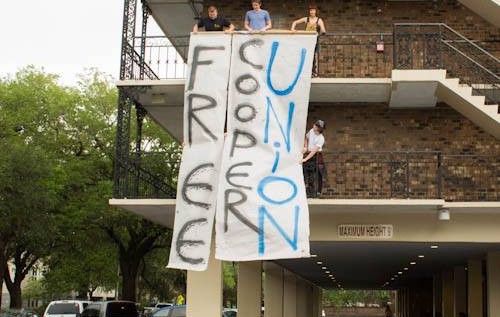 FREE
COOPER
UNION
MAXIMUM HEIGHT 9